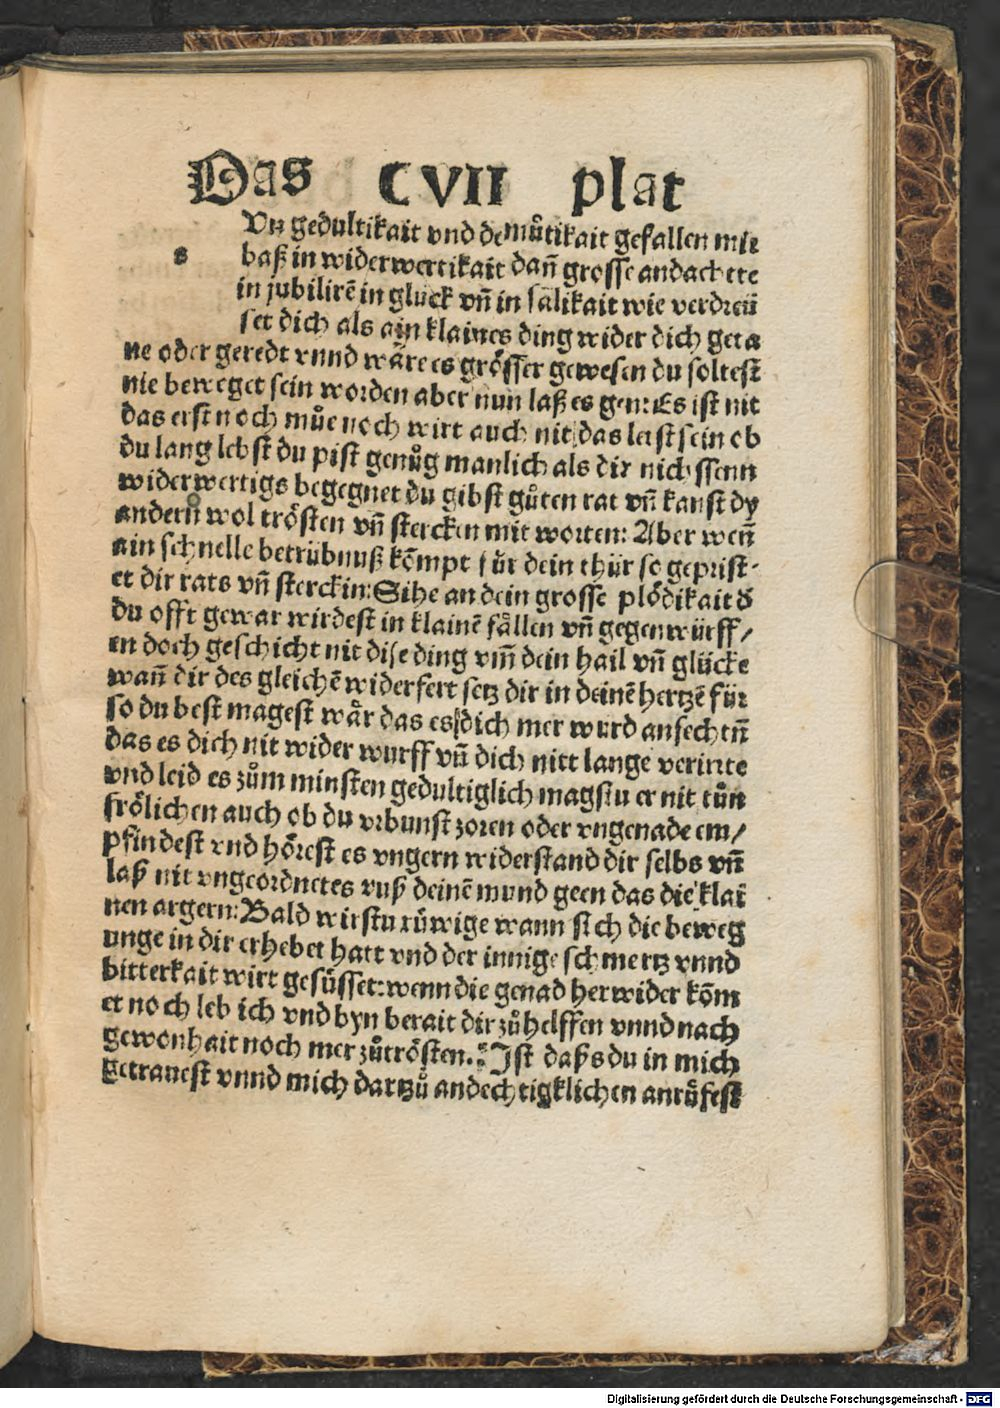 Das CVII plat
Vn gedultikait vnd demuͤtikait gefallen mir
s
baß in widerwertikait dañ grosse andacht ete
in jubilirē in gluck vñ in sälikait wie verdreü
set dich als ain klaines ding wider dich geta
ne oder geredt vnnd wäre es grösser gewesen du soltest
nie beweget sein worden aber nun laß es gen: Es ist nit
das erst noch muͤe noch wirt auch nit das letst sein ob
du lang lebst du pist genuͦg manlich als dir nichssenn
widerwertigs begegnet du gibst guͦten rat vñ kanst dy
andern wol trösten vñ stercken mit worten: Aber weñ
ain schnelle betrübnuß kōmpt für dein thür so geprist-
et dir rats vñ sterckin: Sihe an dein grosse plödikait d
du offt gewar wirdest in klainē fällen vñ gegenwürff/
en doch geschicht nit dise ding vm̄ dein hail vñ glücke
wañ dir des gleichē widerfert setz dir in deinē hertzē für
so du best magest wär das es dich mer wurd anfechtñ
das es dich nit wider wurff vñ dich nitt lange verirrte
vnd leid es zuͦm minsten gedultiglich magstu er nit tuͦn
frölichen auch ob du vrbunst zoren oder vngenade em/
pfindest vnd hörest es vngern widerstand dir selbs vñ
laß nit vngeordnetes vuß deinē mund geen das die klai
nen argern: Bald wirstu ruͤwige wann sich die beweg
unge in dir erhebet hatt vnd der innige schmertz vnnd
bitterkait wirt gesüsset: wenn die genad herwider kōm
et noch leb ich vnd byn berait dir zuͦhelffen vnnd nach
gewonhait noch mer zuͦtrösten. Ist daßs du in mich
getrauest vnnd mich dartzuͦ andechtigklichen anruͤfest
Digitalisierung gefördert durch die Deutsche Forschungsgemeinschaft - DFG